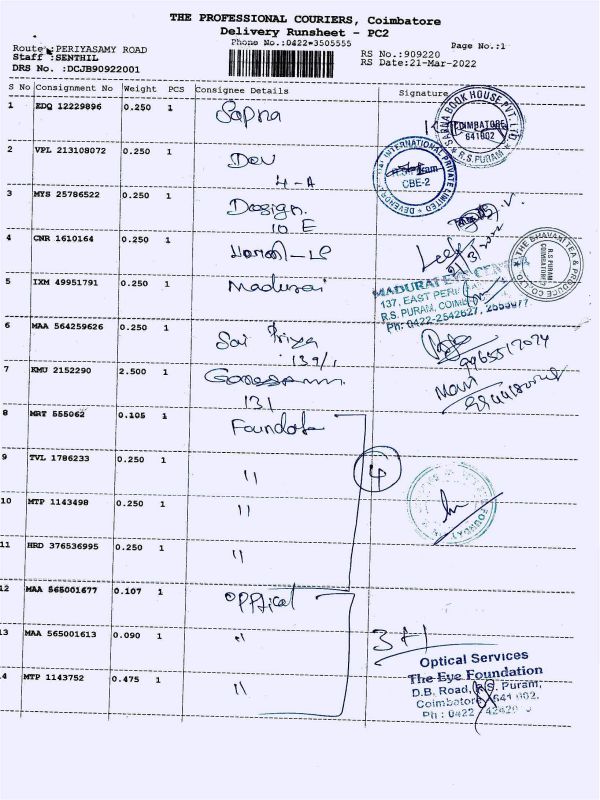 THE PROFESSIONAL COURIERS, Coimbatore
Delivery Runsheet - PC2
Phone No.:0422-3505555
Page No.:1
Route :PERIYASAMY ROAD
RS No.:909220
Staff :SENTHIL
RS Date:21-Mar-2022
DRS No. :DCJB90922001
S No Consignment No Weight PCS Consignee Details Signature
1 EDQ 12229896 0.250 1 Sapna
SAPNA BOOK HOUSE PVT. LTD
COIMBATORE
641002
R.S.PURAM
2 VPL 213108072 0.250 1 Dev
4-A
INTERNATIONAL PRIVATE LIMITED
R.S.Puram
CBE-2
3 MYS 25786522 0.250 1 Design
10 E
4 CNR 1610164 0.250 1
THE BHAVANI TEA & PRODUCE CO. LTD
R.S PURAM
COIMBATORE
5 IXM 49951791 0.250 1 Madurai
MADURAI
137, EAST PERI
R.S. PURAM, COIMB
Ph: 0422-2542627,
6 MAA 564259626 0.250 1 Sai Priya
139/1
7 KMU 2152290 2.500 1
131
Mani
8 MRT 555062 0.105 1
9 TVL 1786233 0.250 1 "
4
10 MTP 1143498 0.250 1 "
11 HRD 376536995 0.250 1 "
12 MAA 565001677 0.107 1 Optical
13 MAA 565001613 0.090 1 "
3+1
14 MTP 1143752 0.475 1 "
Optical Services
The Eye Foundation
D.B. Road, R.S. Puram,
Coimbatore 641 002.
Ph : 0422